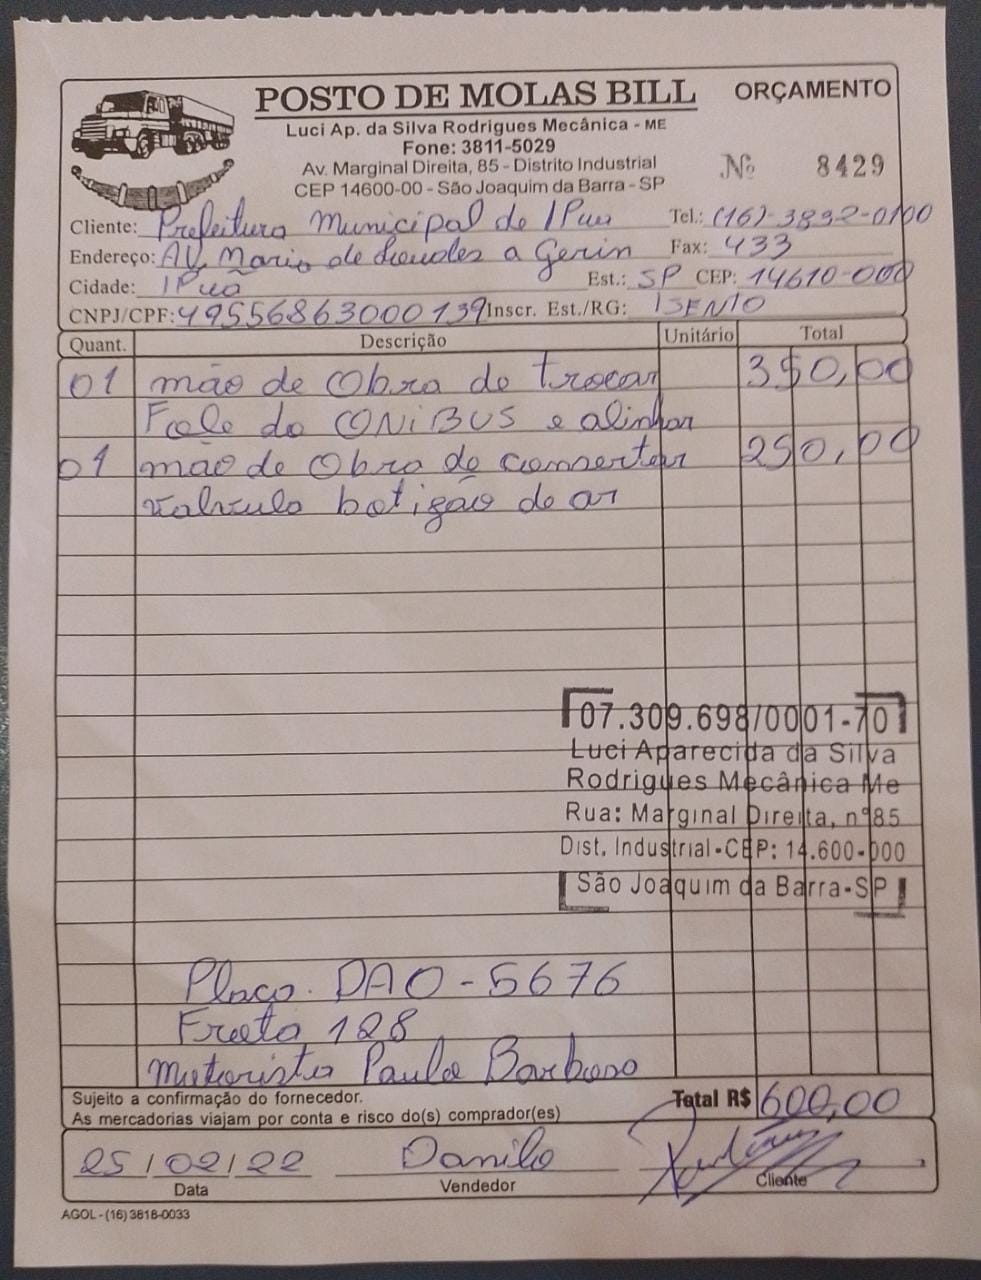 POSTO DE MOLAS BILL
ORÇAMENTO
Luci Ap. da Silva Rodrigues Mecânica - ME
Fone: 3811-5029
Av. Marginal Direita, 85 - Distrito Industrial
CEP 14600-00 - São Joaquim da Barra - SP
Nº 8429
Cliente: Prefeitura Municipal de IPua Tel.: (16)-3832-0100
Endereço: AV. Maria de Lourdes a Gerin Fax: 433
Cidade: IPuã Est.: SP CEP: 14610-000
CNPJ/CPF: 49556863000139 Inscr. Est./RG: ISENTO
Quant. Descrição Unitário Total
01 mão de Obra de trocar 350,00
Fole do ONiBUS e alinhar
01 mão de Obra de consertar 250,00
valvula botigão de ar
07.309.698/0001-70
Luci Aparecida da Silva
Rodrigues Mecânica Me
Rua: Marginal Direita, nº85
Dist. Industrial-CEP: 14.600-000
São Joaquim da Barra-SP
Placa. DAO-5676
Frota 128
Motorista Paulo Barboso
Sujeito a confirmação do fornecedor.
As mercadorias viajam por conta e risco do(s) comprador(es)
Total R$ 600,00
25/02/22 Danilo
Data Vendedor Cliente
AGOL - (16) 3818-0033